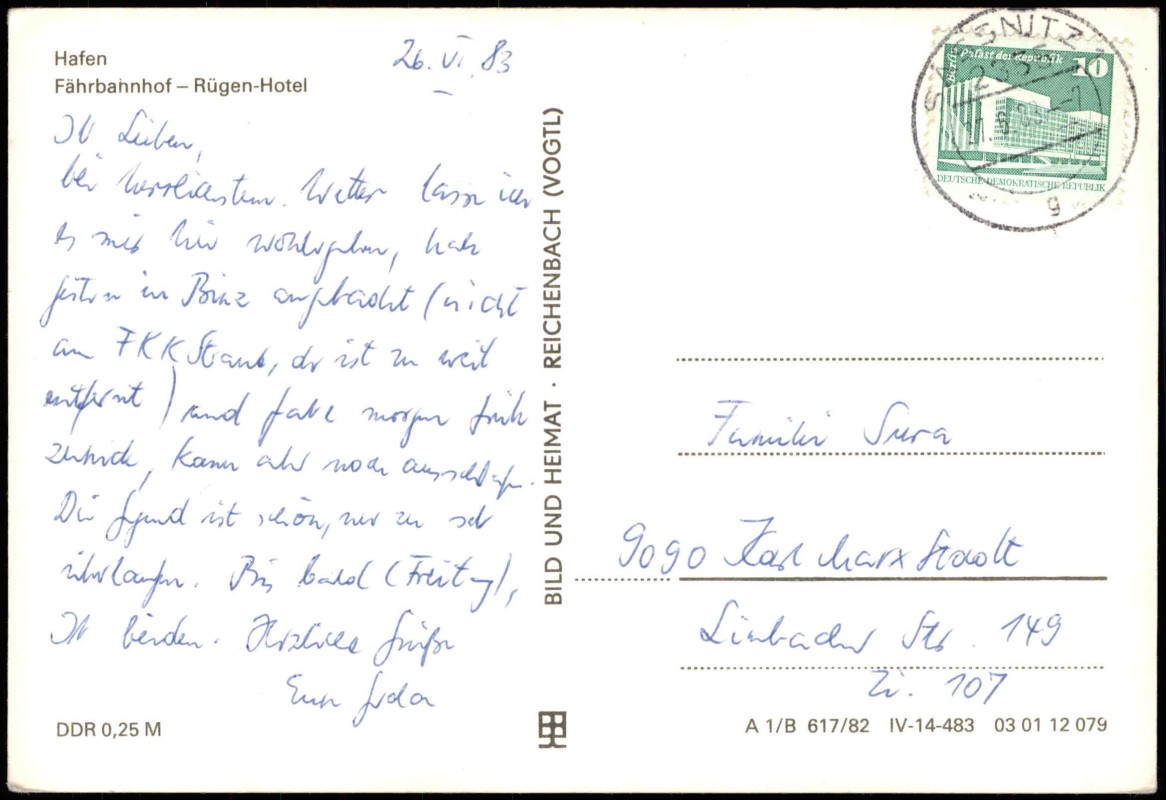 Hafen
Fährbahnhof – Rügen-Hotel
26. VI. 83
Ihr Lieben,
bei herrlichstem Wetter lasse ich
es mir hier wohlergehen, habe
gestern in Binz angebadet (nicht
am FKK Strand, der ist zu weit
entfernt) und fahre morgen früh
zurück, kann aber noch ausschlafen.
Die Gegend ist schön, nur zu sehr
überlaufen. Bis bald (Freitag),
Ihr beiden. Herzliche Grüße
Eure
DDR 0,25 M
BILD UND HEIMAT · REICHENBACH (VOGTL)
SASSNITZ 1
2355
27.6.83-7
g
Berlin Palast der Republik
10
DEUTSCHE DEMOKRATISCHE REPUBLIK
Familie Sura
9090 Karl Marx Stadt
Limbacher Str. 149
Zi. 107
A 1/B 617/82 IV-14-483 03 01 12 079